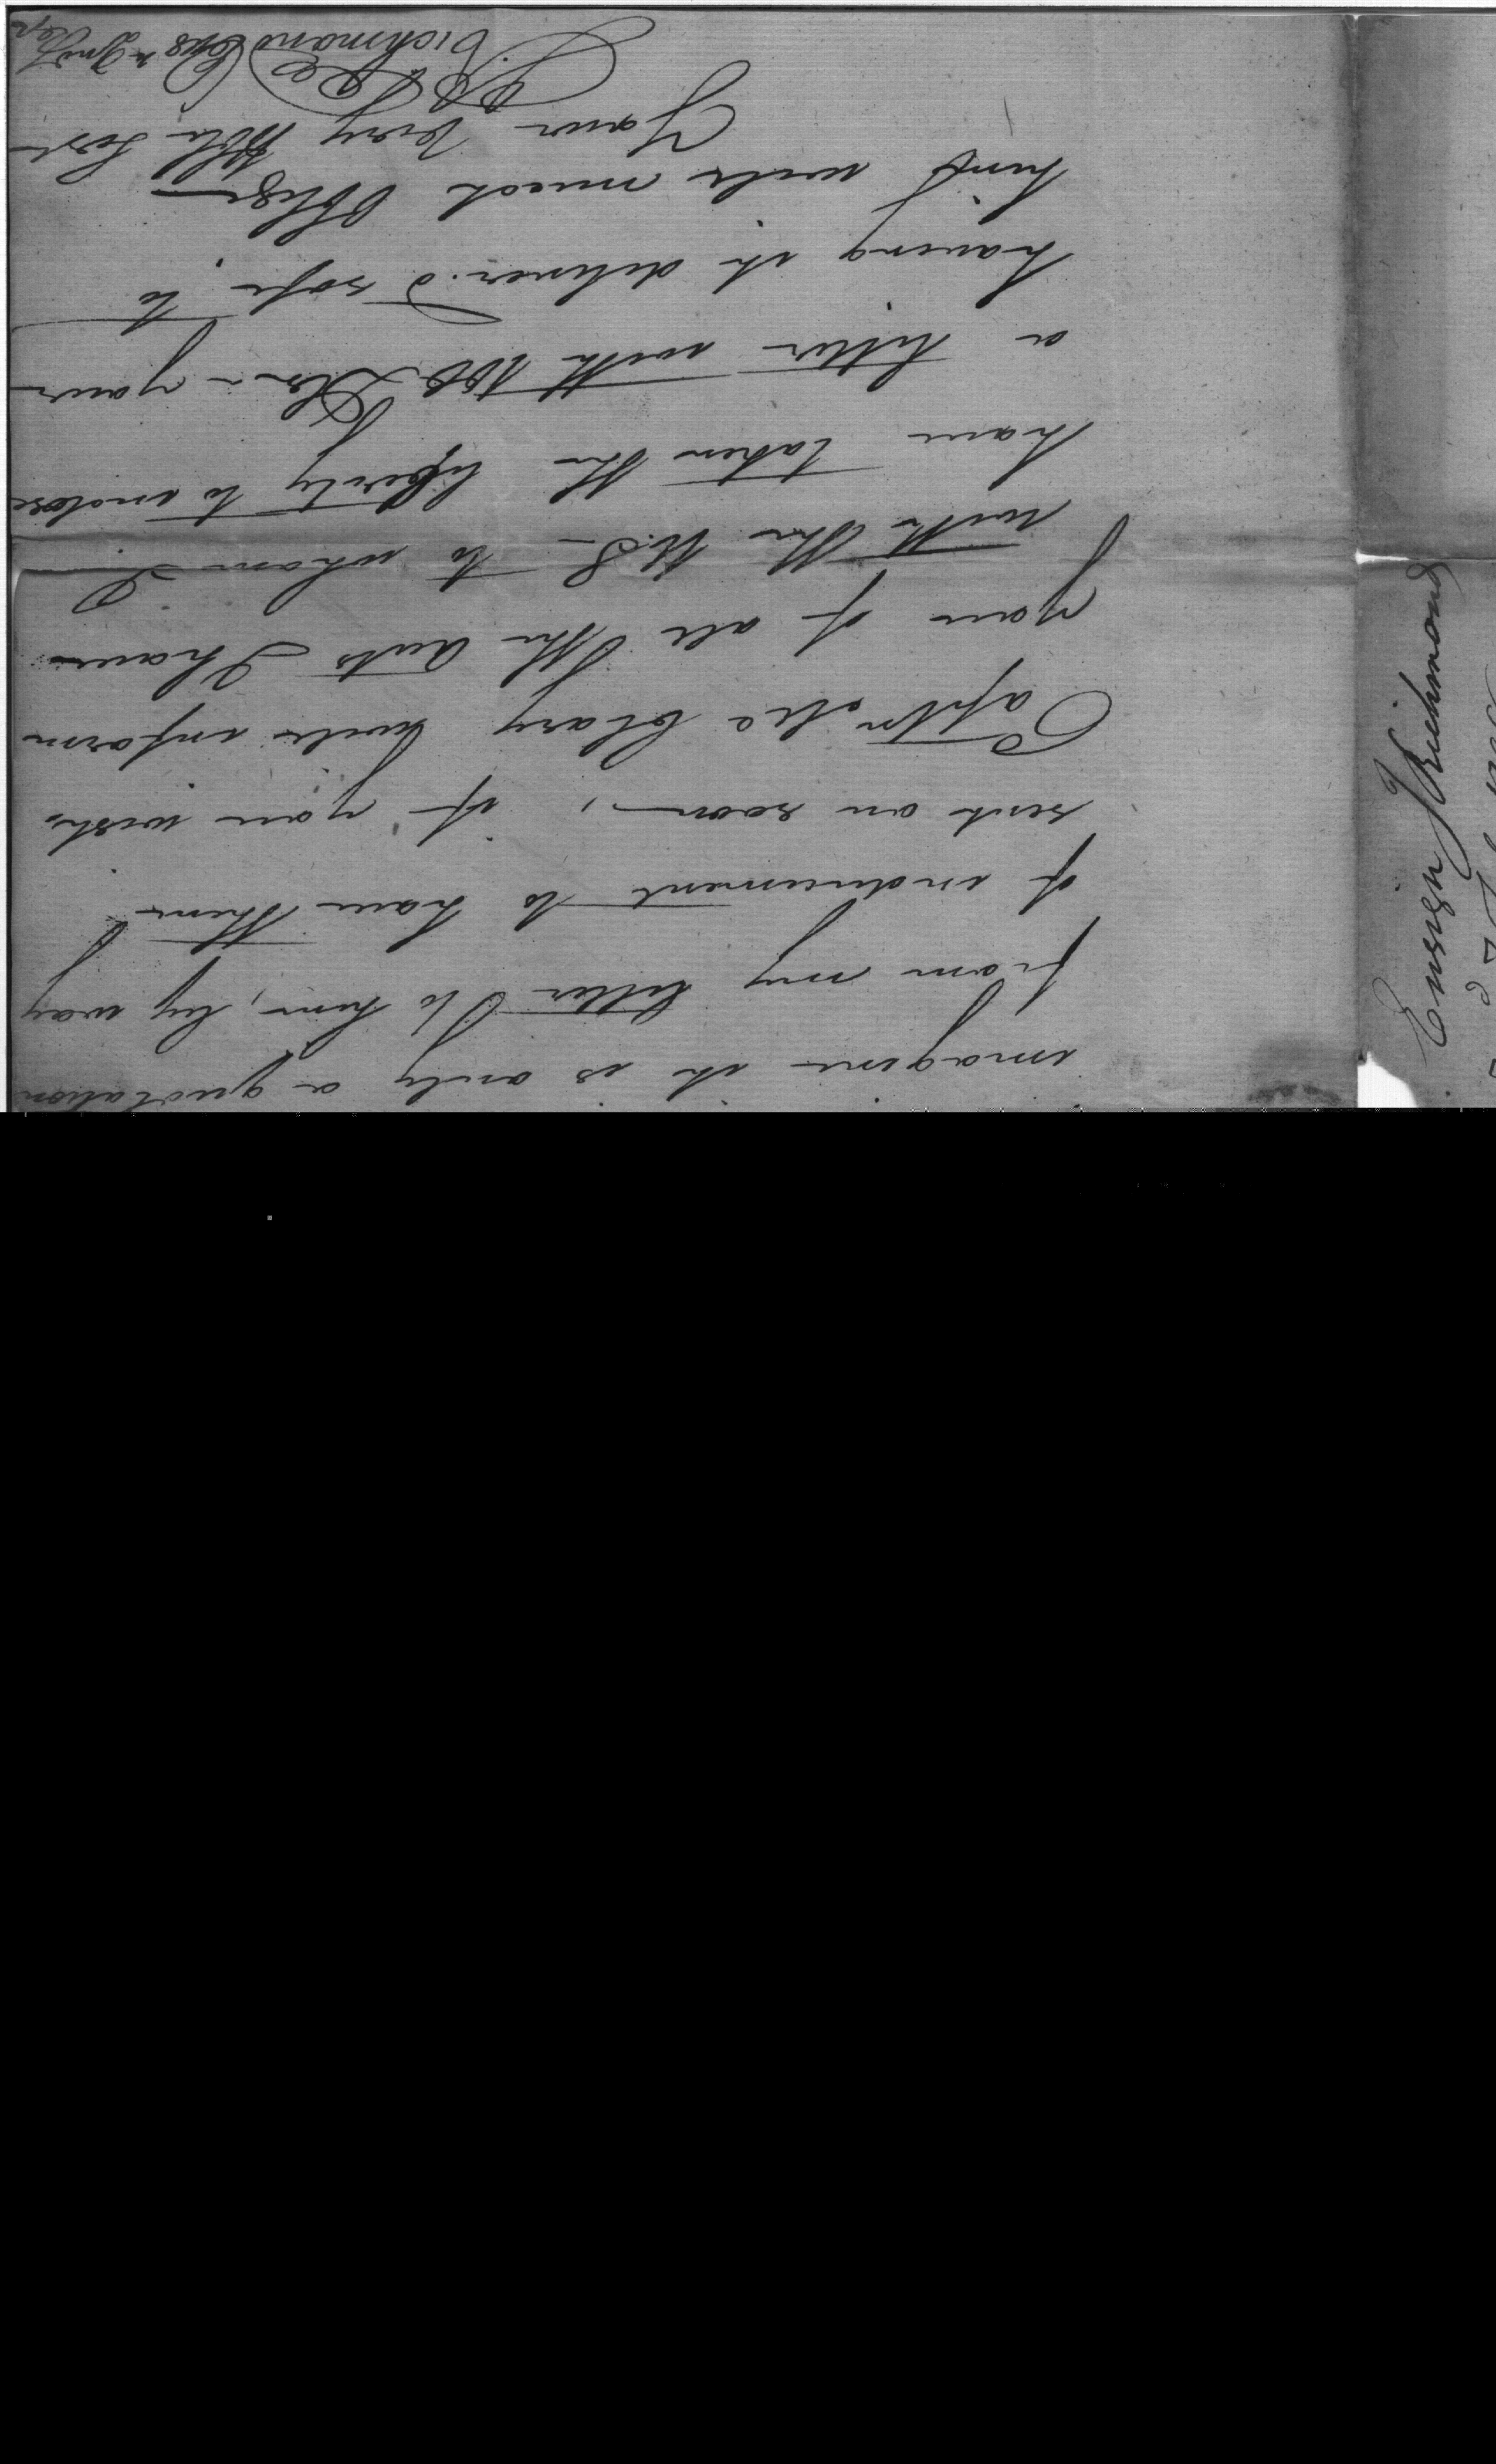 imagine it is only a quotation
from my letter to him, by way
of inducement to have them
sent on soon, if you wish.
Captn McClary will inform
you of all the acts I have
with the U.S. to whom I
have taken the liberty to inclose
a letter with 100 Dlrs - your
having it deliver.d safe, to
him will much Oblige
Your very Hble Sert
Richmond
Ensign Richmond